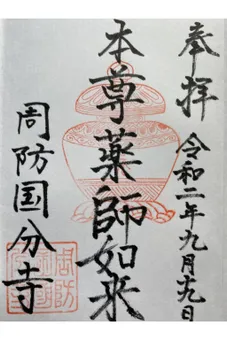 奉拝
令和二年九月十九日
本尊薬師如来
周防国分寺